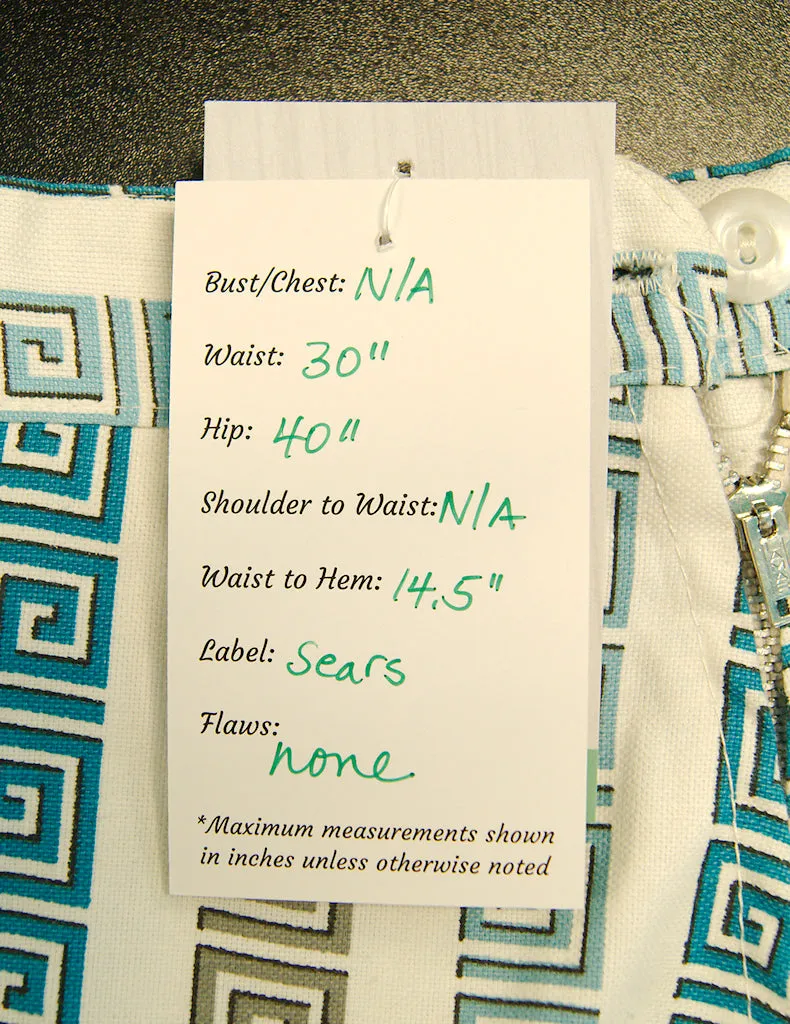 Bust/Chest: N/A
Waist: 30"
Hip: 40"
Shoulder to Waist: N/A
Waist to Hem: 14.5"
Label: Sears
Flaws:
none
*Maximum measurements shown
in inches unless otherwise noted